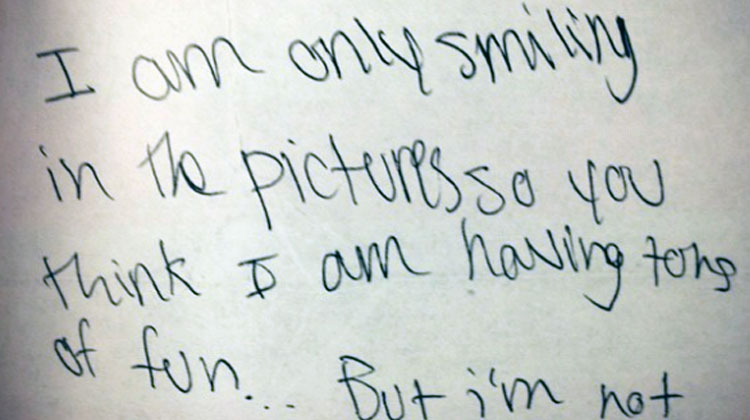 I am only smiling
in the pictures so you
think I am having tons
of fun... But i'm not